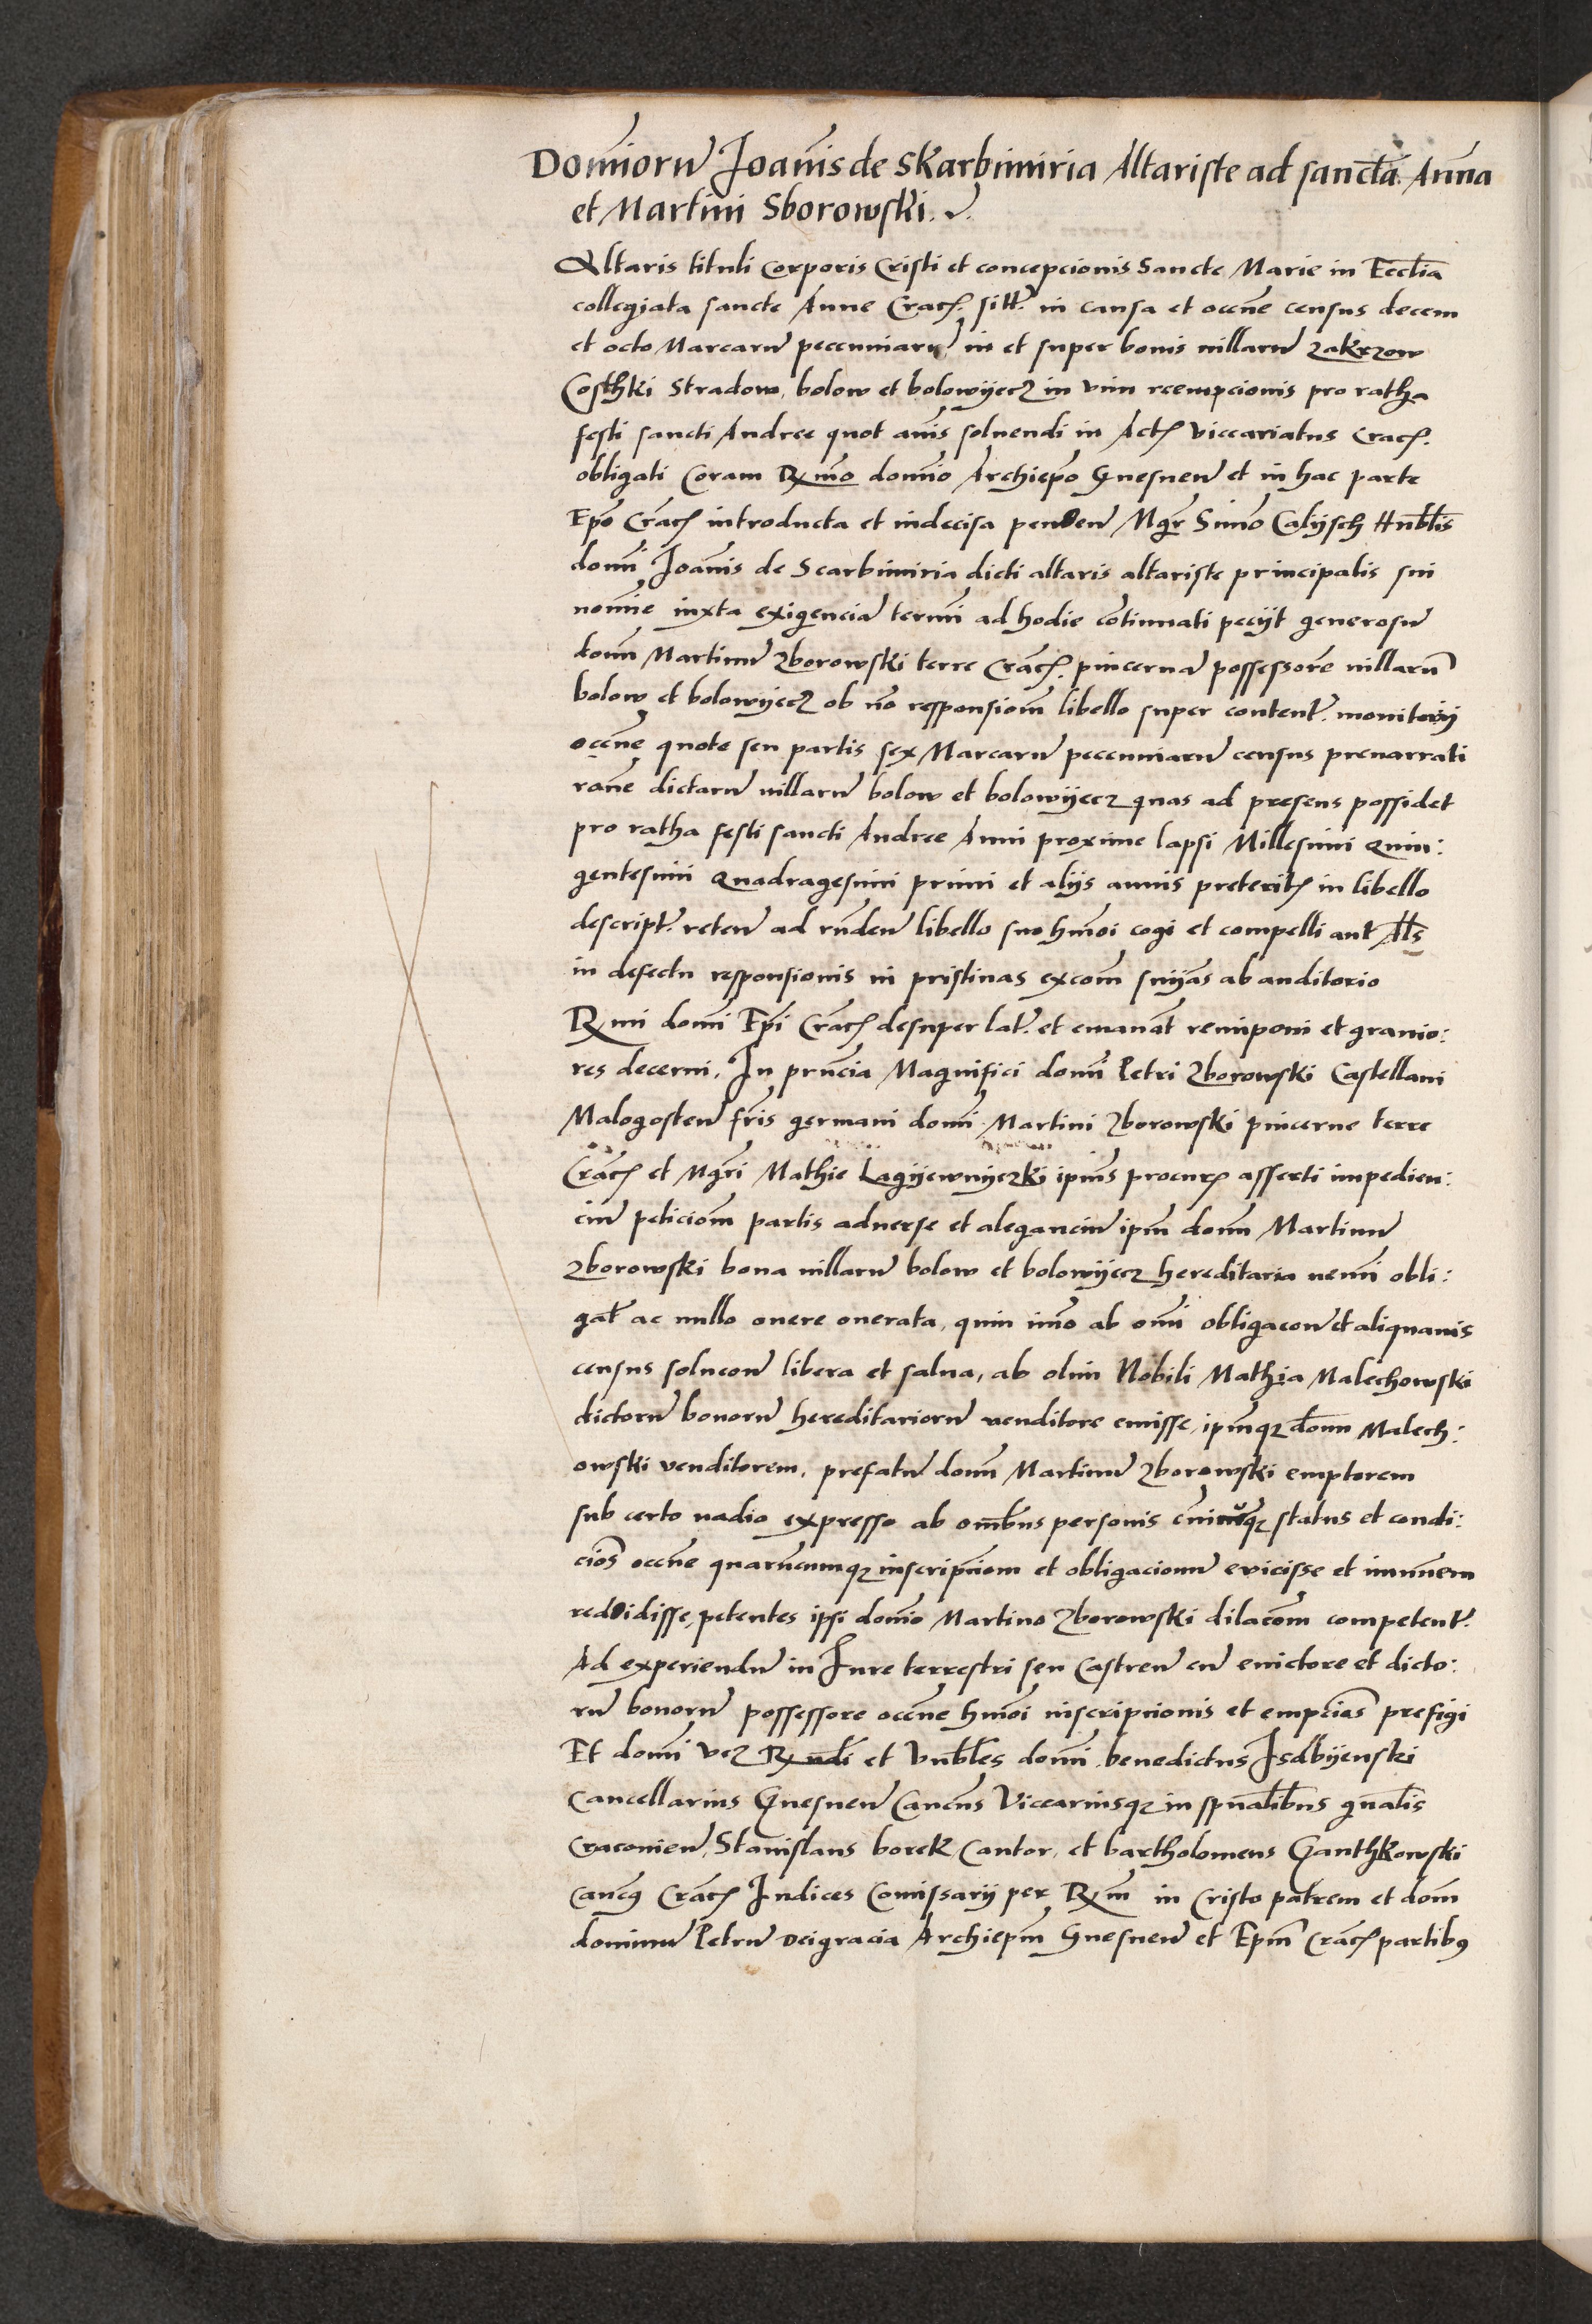 Dominorum Joannis de Skarbimiria Altariste ad sanctam Annam
et Martini Sborowski.
Altaris tituli Corporis Cristi et concepcionis Sancte Marie in Eccl̄ia
collegiata sancte Anne Crac̄. sitt. in causa et occ̄ne census decem
et octo Marcarū peccuniarū in et super bonis villarū zakrzow
Costhki Stradow, bolow et bolowijecz in vim reempcionis pro ratha
festi sancti Andree quot an̄is soluendi in Act̄ viccariatus Crac̄.
obligati Coram Rx̄mo domīo Archiep̄o Gnesneñ et in hac parte
Ep̄o Crac̄ introducta et indecisa pendeñ Mgr̄ Simō Calijsch Hūbl̄is
domī Joan̄is de Scarbimiria dicti altaris altariste principalis sui
noīne iuxta exigenciā termī ad hodie cōtinuati peciјt generosū
dom̄ Martinū Zborowski terre Crac̄. pincernā possessorē villarū
bolow et bolowijecz ob nō responsiom̄ libello super content. monitorij
occ̄ne quote seu partis sex Marcarū peccuniarū census prenarrati
raõne dictarū villarū bolow et bolowijecz quas ad presens possidet
pro ratha festi sancti Andree Anni proxime lapsi Millesimi Quin:
gentesimi Quadragesimi primi et alijs annis preterit̄ in libello
descript. reteñ ad rñdeñ libello suo hm̄oi cogi et compelli aut Al̄s
in defectu responsionis in pristinas excom̄ snīas ab auditorio
Rx̄mi domī Ep̄i Crac̄ desuper lat. et emanāt reimponi et gravio:
res decerni. In pr̄ncia Magnifici domī Petri Zborowski Castellani
Malogosteñ fr̄is germani domī Martini Zborowski pincerne terre
Crac̄ et Mgr̄i Mathie Lagijewnijczki ip̄ius procur̄ asserti impedien:
ciū peticiom̄ partis aduerse et aleganciū ip̄m dom̄ Martinū
Zborowski bona villarū bolow et bolowijecz hereditaria nemī obli:
gat̄ ac nullo onere onerata, quin im̄o ab om̄i obligacoñ et aliquauis
census solucoñ libera et salua, ab olim Nobili Mathia Malechowski
dictorū bonorū hereditariorū venditore emisse, ip̄mqz dom̄ Malech:
owski venditorem, prefatū dom̄ Martinū Zborowski emptorem
sub certo vadio expresso ab om̄ibus personis cuiuscūqz status et condi:
ciōs occ̄ne quarūcumqz inscripcīom et obligacionū evicisse et imunem
reddidisse, petentes ipsi domīo Martino Zborowski dilacōm competent.
Ad experiendū in Jure terrestri seu Castreñ cū euictore et dicto:
rū bonorū possessore occ̄ne hm̄oi inscripcionis et empcīois prefigi
Et domī vez Rx̄ndi et Vn̄bl̄es domī benedictus Jsdbijenski
Cancellarius Gnesneñ Canc̄us Viccariusqz in sp̄ualibus gn̄alis
Cracouieñ, Stanislaus borek Cantor, et bartholomeus Ganthkowski
Canc̄9 Crac̄ Iudices Comissarij per Rx̄m in Cristo patrem et dom̄
dominū Petrū deigracia Archiep̄m Gnesneñ et Ep̄m Crac̄ partib9